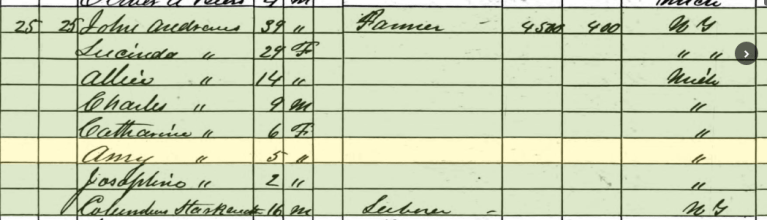 25 25 John Andrews 39 " Farmer - 4500 400 N Y
Lucinda " 29 F " "
Allice " 14 " Mich
Charles " 9 M "
Catharine " 6 F "
Amy " 5 " "
Josephine " 2 " "
Columbus 16 M Laborer - N Y